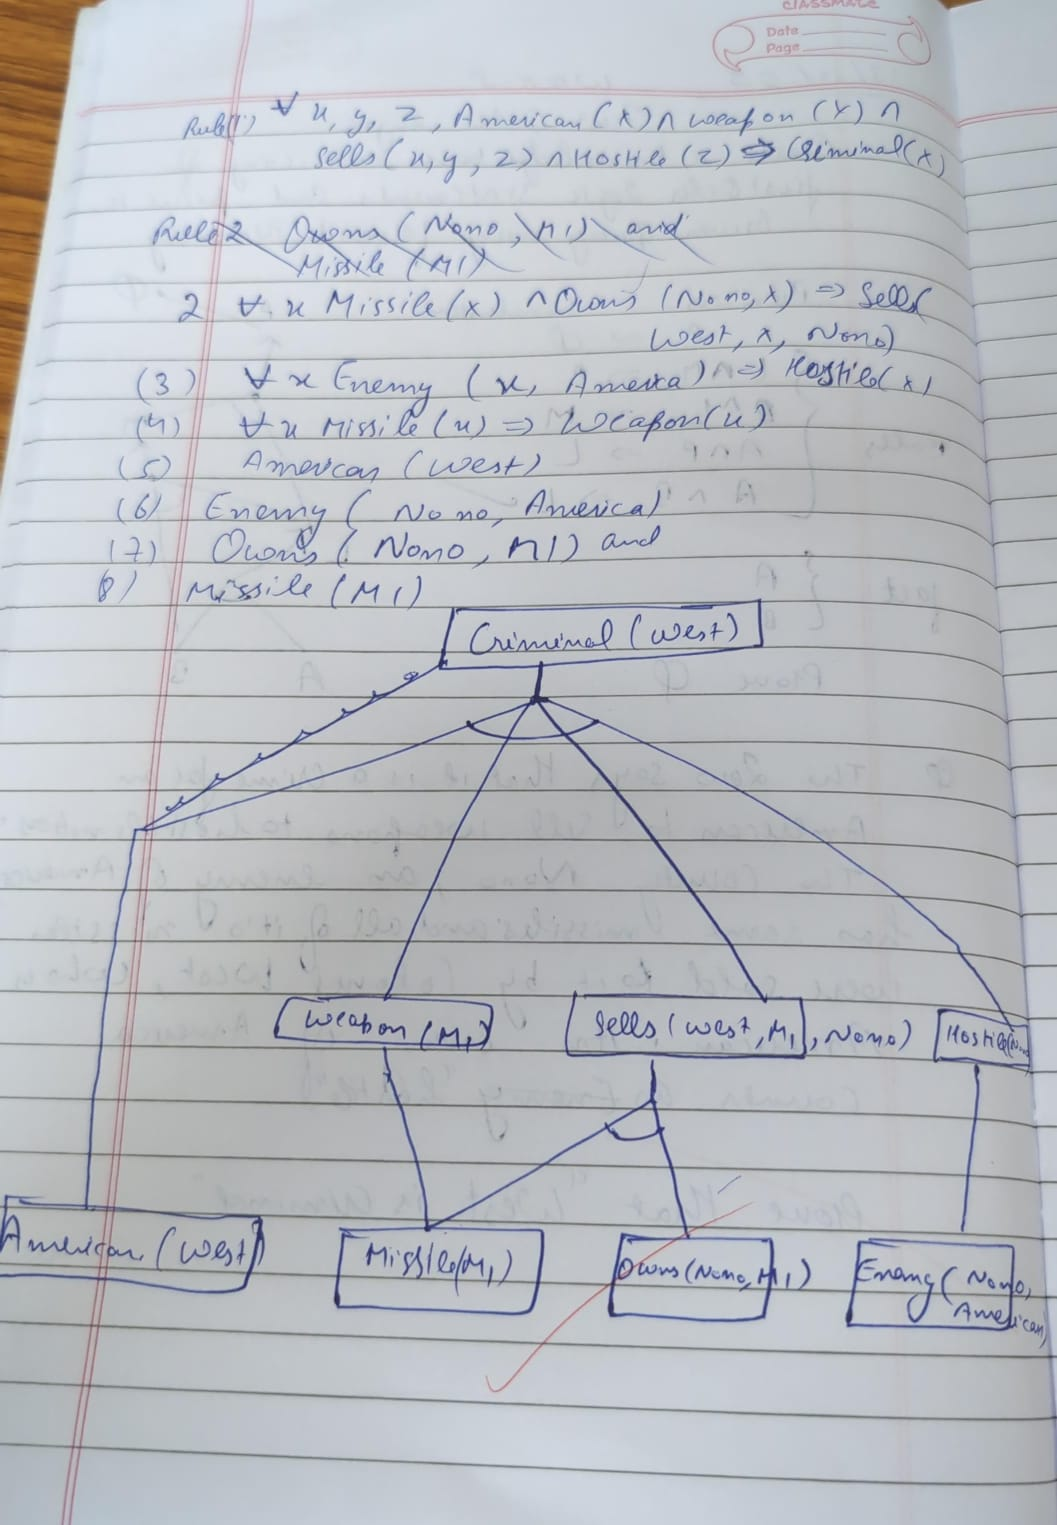 CLASSMATE
Date
Page
Rule(1) ∀ x, y, z, American (X) ∧ weapon (Y) ∧
Sells (x, y, z) ∧ Hostile (Z) ⇒ Criminal (X)
Rule 2 Owns (Nono, M1) and
Missile (M1)
2 ∀ x Missile (x) ∧ Owns (Nono, x) ⇒ Sells(
West, x, Nono)
(3) ∀ x Enemy (x, America) ⇒ Hostile (x)
(4) ∀ x Missile (x) ⇒ Weapon (x)
(5) American (West)
(6) Enemy ( Nono, America)
(7) Owns ( Nono, M1) and
8) Missile (M1)
Criminal (West)
Weapon (M1)
Sells (West, M1, Nono)
Hostile (Nono
American (West)
Missile (M1)
Owns (Nono, M1)
Enemy ( Nono,
American)